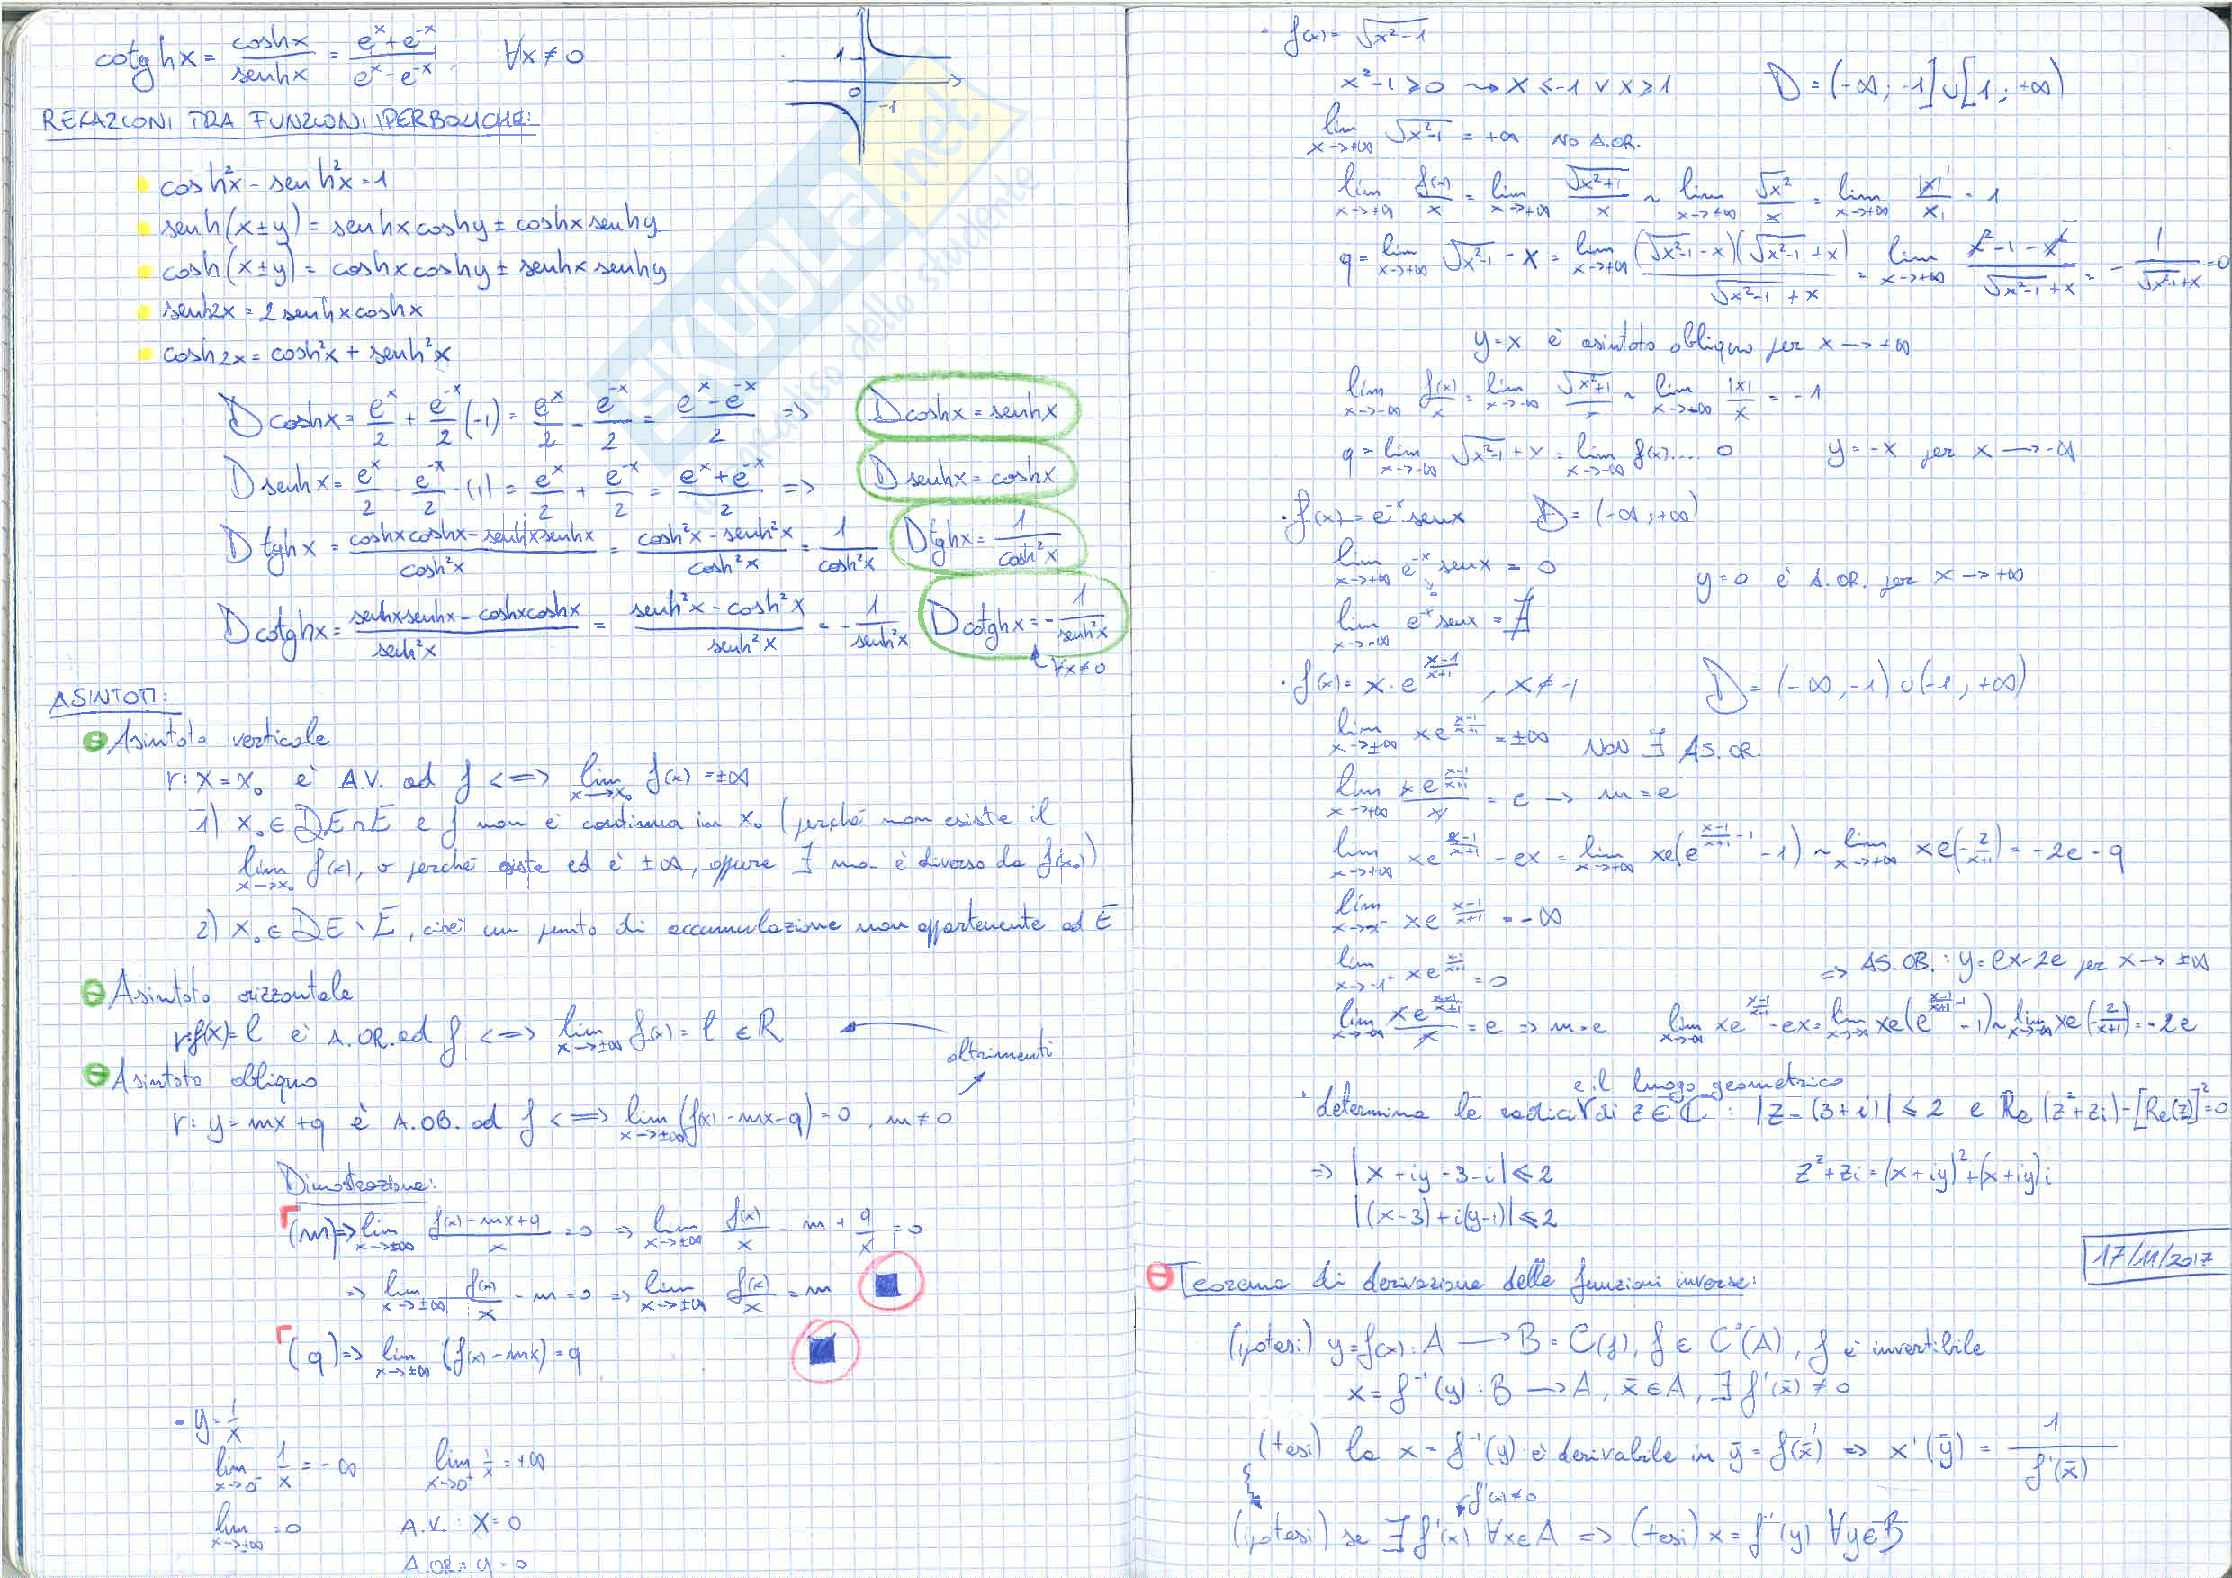 cotghx = coshx/senhx = (e^x + e^-x)/(e^x - e^-x) ∀x ≠ 0
1
0
-1
RELAZIONI TRA FUNZIONI IPERBOLICHE:
cosh²x - senh²x = 1
senh(x±y) = senhx coshy ± coshx senhy
cosh(x±y) = coshx coshy ± senhx senhy
senh2x = 2 senhx coshx
cosh2x = cosh²x + senh²x
D coshx = e^x/2 + e^-x/2 (-1) = e^x/2 - e^-x/2 = (e^x - e^-x)/2 => D coshx = senhx
D senhx = e^x/2 - e^-x/2 ·(-1) = e^x/2 + e^-x/2 = (e^x + e^-x)/2 => D senhx = coshx
D tghx = (coshx coshx - senhx senhx)/cosh²x = (cosh²x - senh²x)/cosh²x = 1/cosh²x D tghx = 1/cosh²x
D cotghx = (senhx senhx - coshx coshx)/senh²x = (senh²x - cosh²x)/senh²x = -1/senh²x D cotghx = -1/senh²x
∀x≠0
ASINTOTI:
Asintoto verticale
r: x = x₀ è A.V. ad f <=> lim x→x₀ f(x) = ±∞
1) x₀ ∈ DE∩E e f non è continua in x₀ (perché non esiste il
lim x→x₀ f(x), o perché esiste ed è ±∞, oppure ∃ ma è diverso da f(x₀))
2) x₀ ∈ DE \ E, cioè un punto di accumulazione non appartenente ad E
Asintoto orizzontale
r: f(x) = l è A.OR. ad f <=> lim x→±∞ f(x) = l ∈ R
altrimenti
Asintoto obliquo
r: y = mx + q è A.OB. ad f <=> lim x→±∞ (f(x) - mx - q) = 0, m ≠ 0
Dimostrazione:
(m) => lim x→±∞ (f(x) - mx + q)/x = 0 => lim x→±∞ f(x)/x - m + q/x = 0
=> lim x→±∞ f(x)/x - m = 0 => lim x→±∞ f(x)/x = m
(q) => lim x→±∞ (f(x) - mx) = q
- y = 1/x
lim x→0⁻ 1/x = -∞ lim x→0⁺ 1/x = +∞
lim x→±∞ = 0 A.V. : x = 0
A.OR.: y = 0
· f(x) = √(x²-1)
x²-1 ≥ 0 → x ≤ -1 ∨ x ≥ 1 D = (-∞; -1] ∪ [1; +∞)
lim x→±∞ √(x²-1) = +∞ NO A.OR.
lim x→+∞ f(x)/x = lim x→+∞ √(x²+1)/x ~ lim x→+∞ √x²/x = lim x→+∞ |x|/x = 1
q = lim x→+∞ √(x²-1) - x = lim x→+∞ (√(x²-1) - x)(√(x²-1) + x)/(√(x²-1) + x) = lim x→+∞ (x² - 1 - x²)/(√(x²-1) + x) = -1/(√(x²-1) + x) = 0
y = x è asintoto obliquo per x → +∞
lim x→-∞ f(x)/x = lim x→-∞ √(x²+1)/x ~ lim x→±∞ |x|/x = -1
q = lim x→-∞ √(x²-1) + x = lim x→-∞ f(x) .... 0 y = -x per x → -∞
· f(x) = e^-x senx D = (-∞; +∞)
lim x→+∞ e^-x senx = 0 y = 0 è A.OR. per x → +∞
lim x→-∞ e^-x senx = ∄
· f(x) = x · e^((x-1)/(x+1)), x ≠ -1 D = (-∞, -1) ∪ (-1; +∞)
lim x→±∞ xe^((x-1)/(x+1)) = ±∞ NON ∃ AS. OR.
lim x→+∞ xe^((x-1)/(x+1))/x = e → m = e
lim x→+∞ xe^((x-1)/(x+1)) - ex = lim x→+∞ xe(e^((x-1)/(x+1) - 1) - 1) ~ lim x→+∞ xe(-2/(x+1)) = -2e = q
lim xe^((x-1)/(x+1)) = -∞
lim x→-1⁺ xe^((x-1)/(x+1)) = 0 => AS.OB.: y = ex - 2e per x → ±∞
lim x→-∞ xe^((x-1)/(x+1))/x = e => m = e lim x→-∞ xe^((x-1)/(x+1)) - ex = lim x→-∞ xe(e^((x-1)/(x+1) - 1) - 1) ~ lim x→-∞ xe(-2/(x+1)) = -2e
e il luogo geometrico
· determina le radici di z ∈ C : |z - (3+i)| ≤ 2 e Re(z² + zi) - [Re(z)]² = 0
=> |x + iy - 3 - i| ≤ 2 z² + zi = (x+iy)² + (x+iy)i
|(x-3) + i(y-1)| ≤ 2
17/11/2017
Teorema di derivazione delle funzioni inverse:
(ipotesi) y = f(x) : A → B = C(f), f ∈ C⁰(A), f è invertibile
x = f⁻¹(y) : B → A, x̄ ∈ A, ∃ f'(x̄) ≠ 0
(tesi) la x = f⁻¹(y) è derivabile in ȳ = f(x̄) => x'(ȳ) = 1/f'(x̄)
f'(x) ≠ 0
(ipotesi) se ∃ f'(x) ∀x ∈ A => (tesi) x = f⁻¹(y) ∀y ∈ B
SKUOLA.net